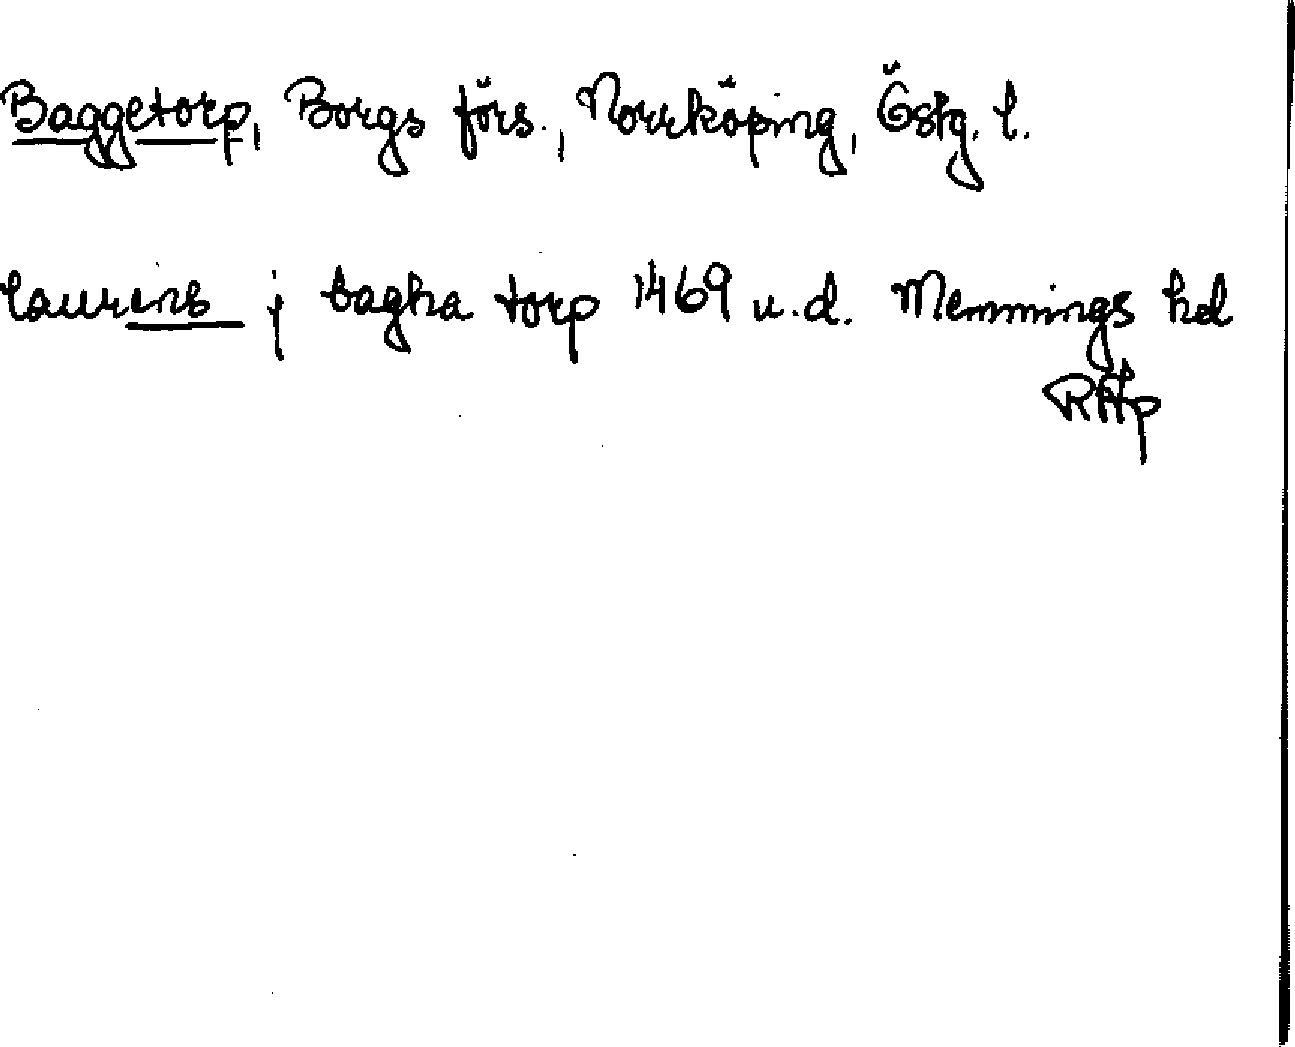 Baggetorp, Borgs förs., Norrköping, Östg. l.
laurens j bagha torp 1469 u.d. Memmings hd
RAp